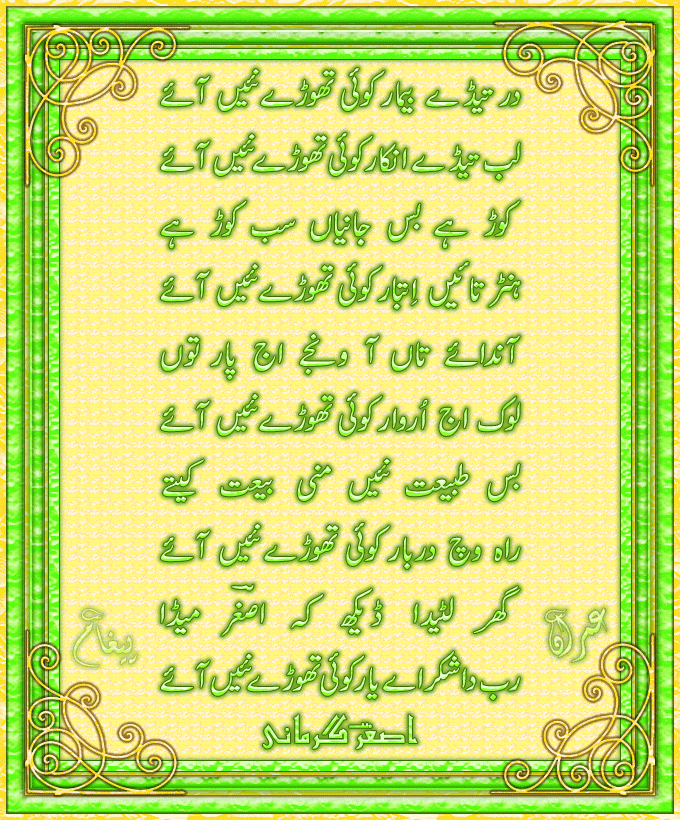 در تیڈے بیمار کوئی تھوڑے نئیں آئے
لب تیڈے انکار کوئی تھوڑے نئیں آئے
کوڑ ہے بس جانیاں سب کوڑ ہے
ہنڑ تائیں اِتبار کوئی تھوڑے نئیں آئے
آندائے تاں آ ونجے اج پار توں
لوک اج اُروار کوئی تھوڑے نئیں آئے
بس طبیعت نئیں منی بیعت کیتے
راہ وچ دربار کوئی تھوڑے نئیں آئے
گھر لٹیدا ڈیکھ کہ اصغرؔ میڈا
رب دا شکر اے یار کوئی تھوڑے نئیں آئے
اصغرؔ کرمانی
پیغام